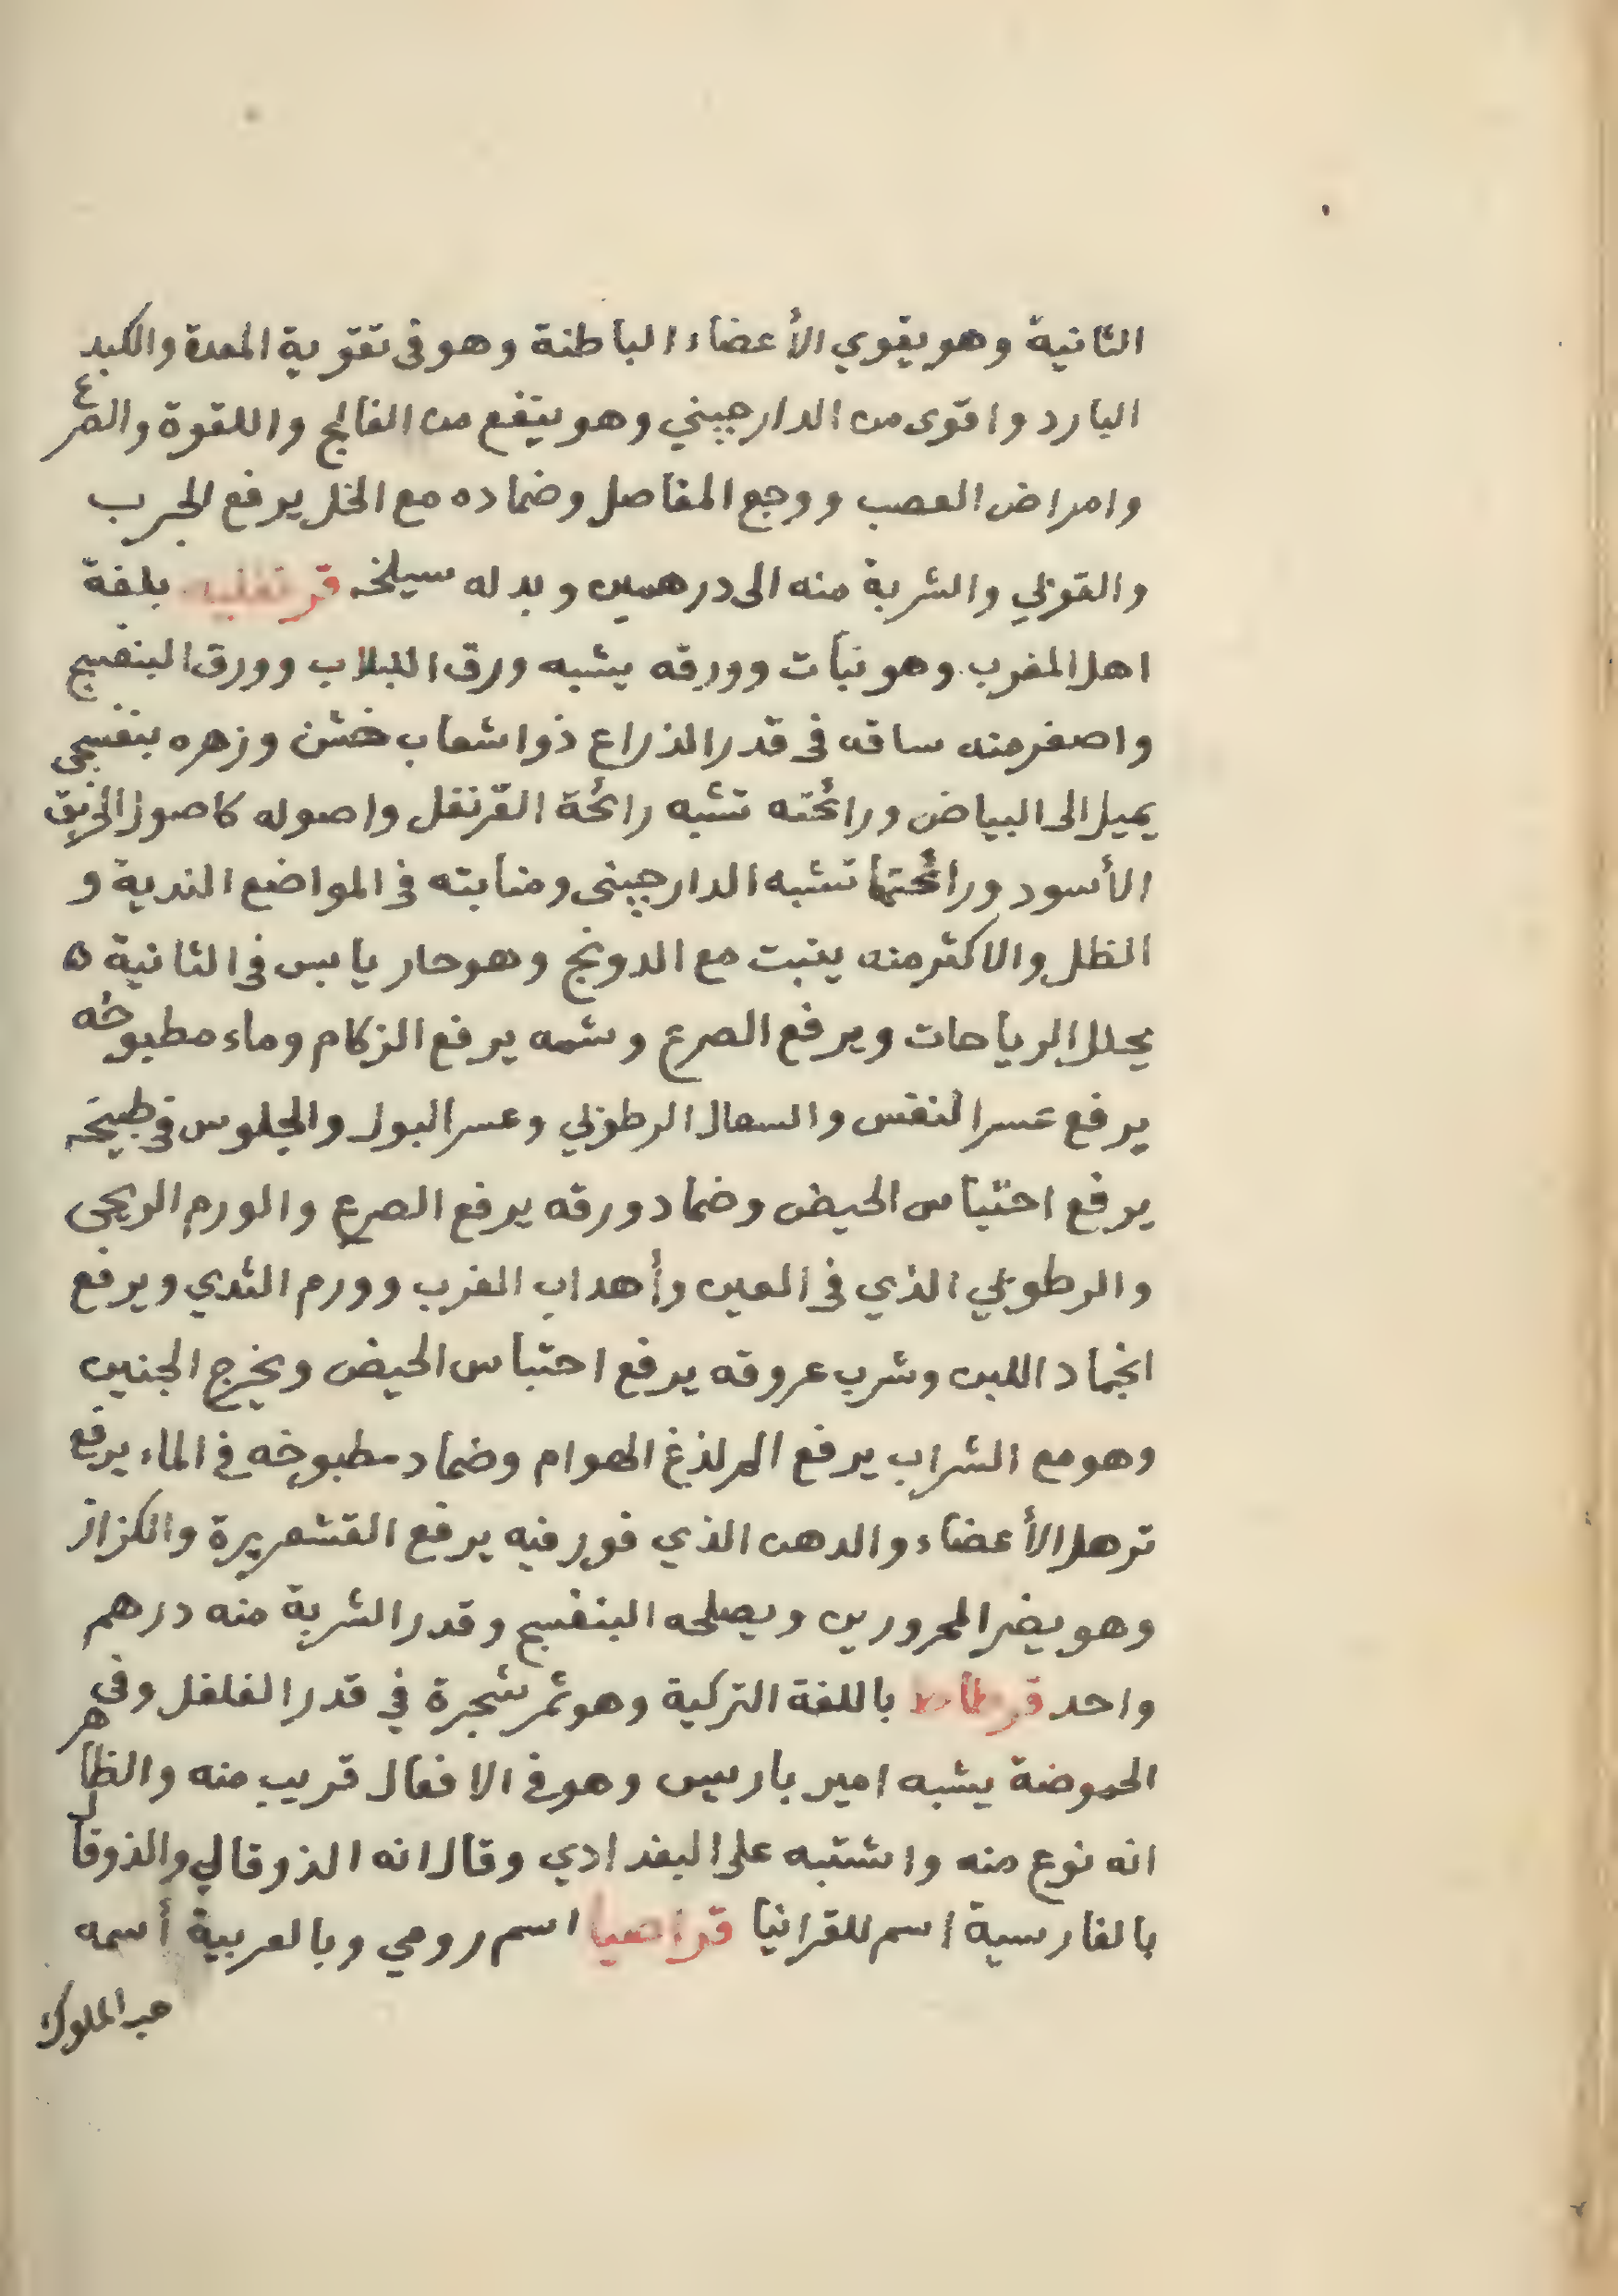 الثانية وهو يقوي الأعضاء الباطنة وهو في تقوية المعدة والكبد
البارد واقوى من الدارچيني وهو ينفع من الفالج واللقوة والصرع
وامراض العصب ووجع المفاصل وضماده مع الخل يرفع الجرب
والقوبي والشربة منه الى درهمين وبدله سيلخه قرنفليه بلغة
اهل المغرب وهو نبات وورقه يشبه ورق اللبلاب وورق البنفسج
واصغر منه ساقه في قدر الذراع ذو اشعاب خشن وزهره بنفسجي
يميل الى البياض ورائحته تشبه رائحة القرنفل واصوله كاصول الخربق
الأسود ورائحتها تشبه الدارچيني ومنابته في المواضع الندية و
الظل والاكثر منه ينبت مع الدونج وهو حار يابس في الثانية ٥
يحلل الرياحات ويرفع الصرع وشمه يرفع الزكام وماء مطبوخه
يرفع عسر النفس والسعال الرطوبي وعسر البول والجلوس في طبيخه
يرفع احتباس الحيض وضماد ورقه يرفع الصرع والورم الريحي
والرطوبي الذي في العين وأهداب الغرب وورم الثدي ويرفع
انجماد اللبن وشرب عروقه يرفع احتباس الحيض ويخرج الجنين
وهو مع الشراب يرفع الم لذغ الهوام وضماد مطبوخه في الماء يرفع
ترهل الأعضاء والدهن الذي فور فيه يرفع القشعريرة والكزاز
وهو يضر المحرورين ويصلحه البنفسج وقدر الشربة منه درهم
واحد باللغة التركية وهو ثمر شجرة في قدر الفلفل وفي
الحموضة يشبه امير باريس وهو في الافعال قريب منه والظاهر
انه نوع منه واشتبه على البغدادي وقال انه الذوقالي والذوقال
بالفارسية اسم للقرانيا قراصيا اسم رومي وبالعربية أسمه
حب الملوك